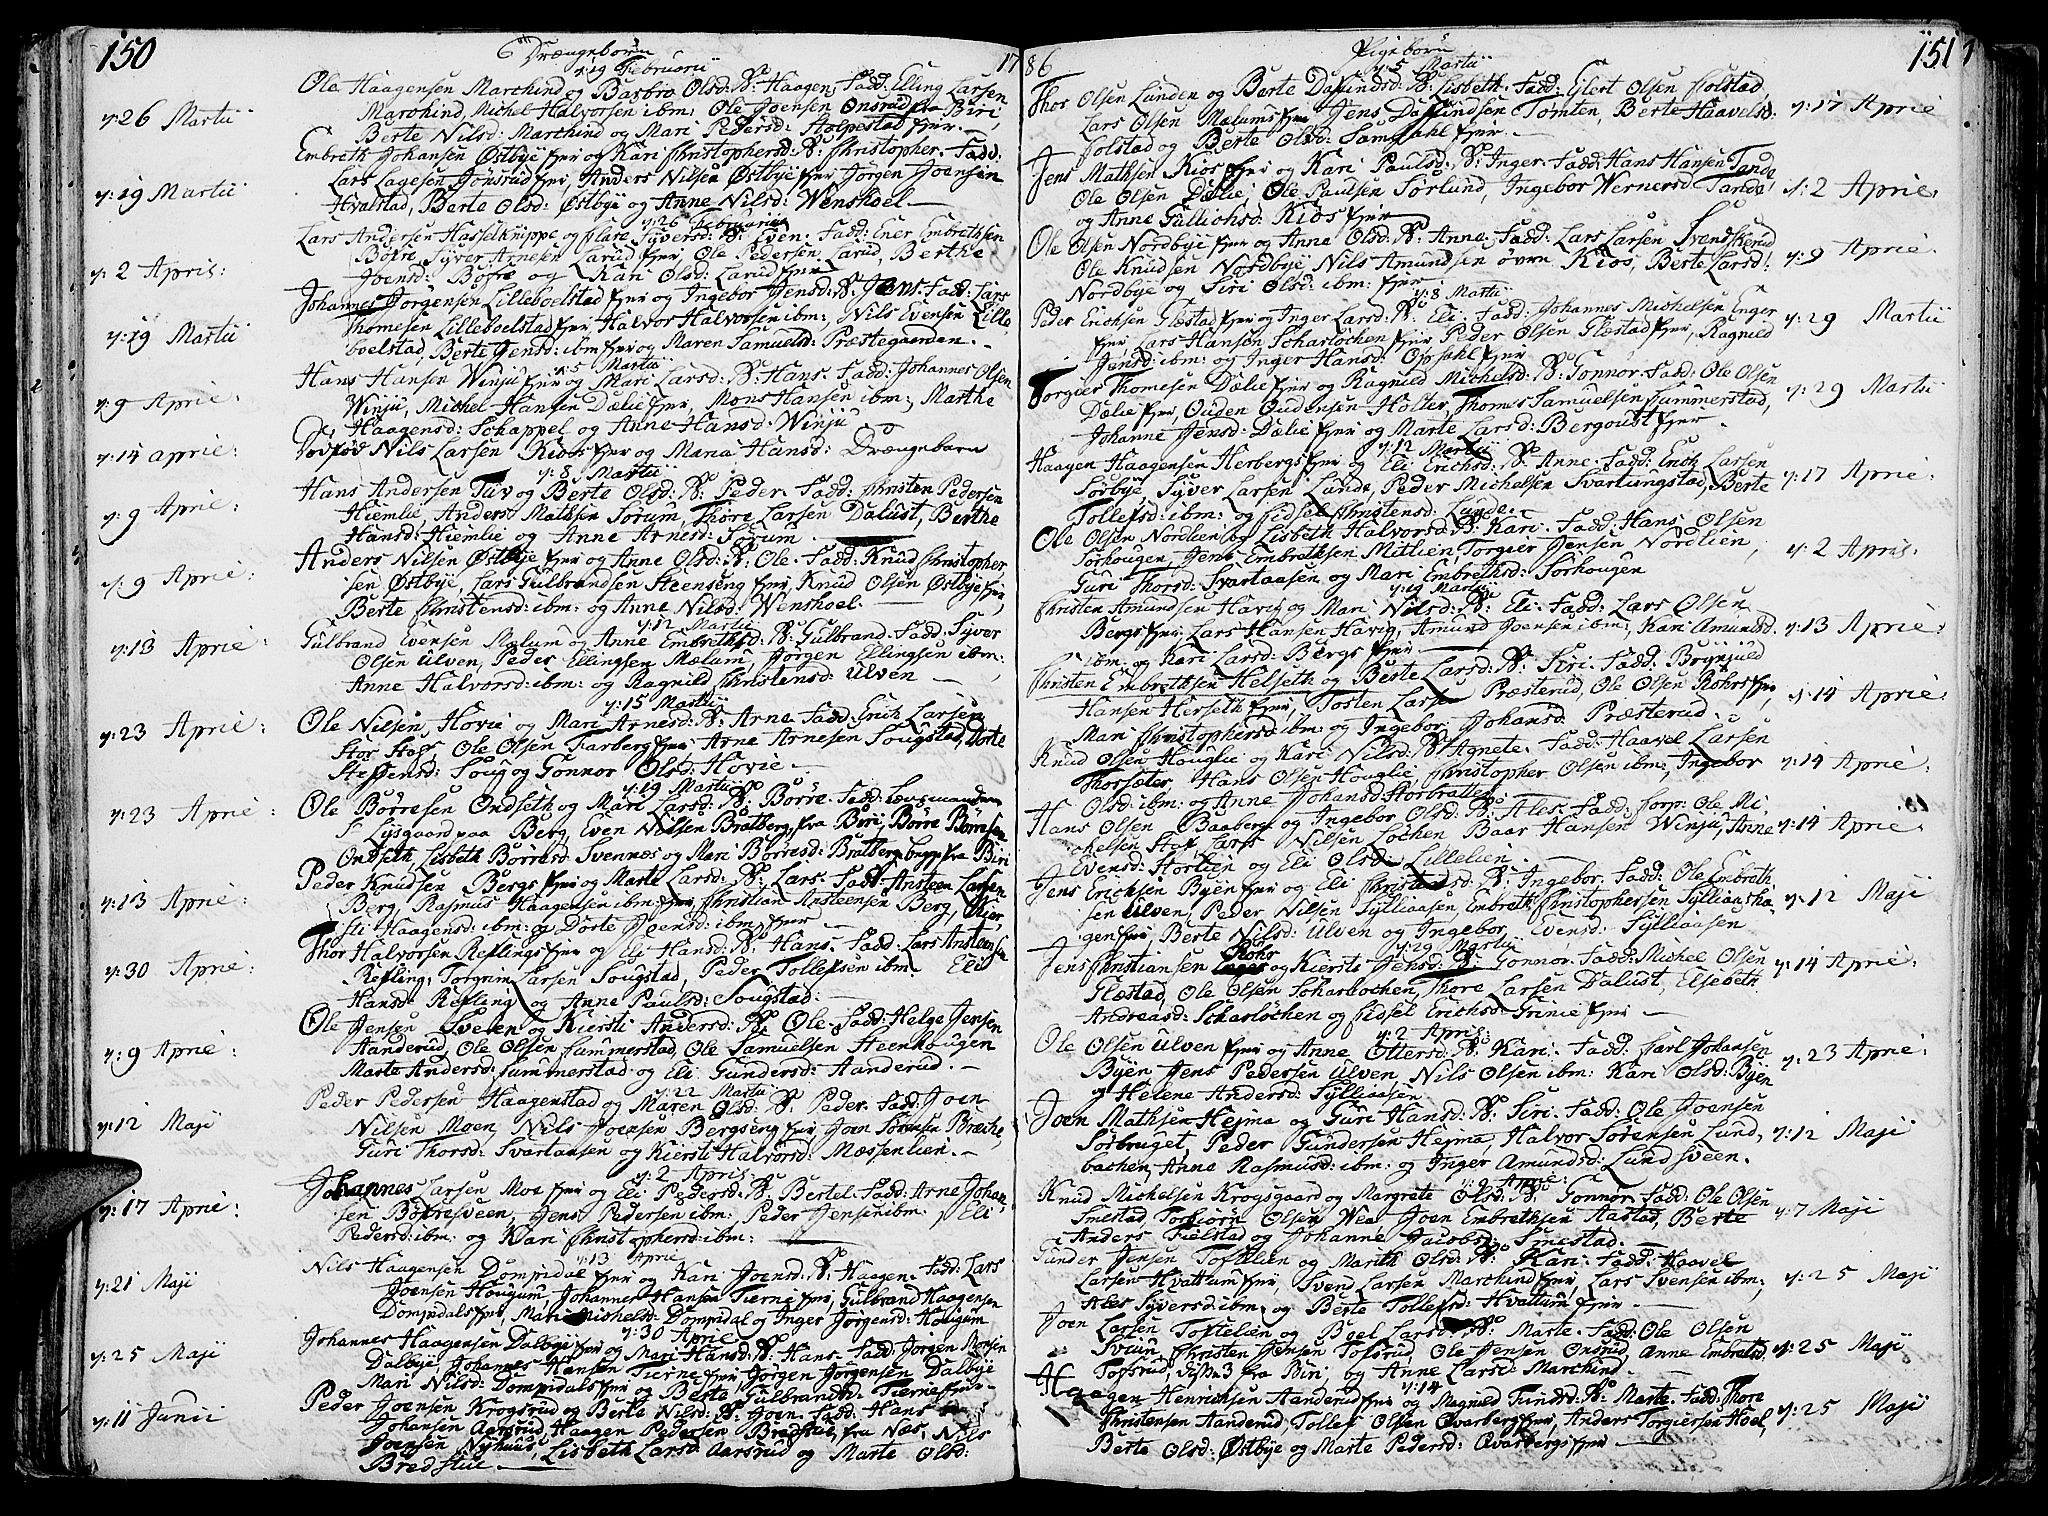 150
Drængebørn
17
y: 19 Februarii
Ole Haagensen Marchind og Barbra Olsd: B: Haagen. Fadd: Elling Larsen
y: 26 Martii
Marchind, Michel Halvorsen ibm: Ole Joensen Onsrud fra Biri,
Berte Nilsd: Marchind og Mari Pedersd: Holpestad Ejer.
Embreth Johansen Østbye Ejer og Kari Christophersd: B: Christopher. Fadd:
y: 19 Martii
Lars Lagesen Jønsrud Ejer, Anders Nilsen Østbye Ejer Jørgen Joensen
Hvalstad, Berte Olsd: Østbye og Anne Nilsd: Wenshoel.
y: 26 Februarii
Lars Andersen Hasselknippe og Clare Syversd: B: Even. Fadd: Ener Embrethsen
y: 2 April:
Bøfre, Syver Arnesen Larud Ejer, Ole Pedersen Larud, Berthe
Joensd: Bøfre og Kari Olsd: Larud Ejer
Johannes Jørgensen Lilleboelstad Ejer og Ingebor Jensd: B: Jens. Fadd: Lars
y: 19 Martii
Thomesen Lilleboelstad Ejer Halvor Halvorsen ibm: Nils Evensen Lille
boelstad, Berte Jensd: ibm Ejer og Maren Samuelsd: Præstegaarden.
y: 5 Martii
Hans Hansen Winju Ejer og Mari Larsd: B: Hans. Fadd: Johannes Olsen
y: 9 Aprie:
Winju, Michel Hansen Dælie Ejer, Mons Hansen ibm: Marthe
Haagensd: Schappel og Anne Hansd: Winju
y: 14 aprie:
Dødfød Nils Larsen Kios Ejer og Maria Hansd: Drængebarn
y: 8 Martii
Hans Andersen Tuv og Berte Olsd: B: Peder. Fadd: Christen Pedersen
y: 9 Aprie:
Hiemlie, Anders Mathsen Sørum, Thore Larsen Dalust, Berthe
Hansd: Hiemlie og Anne Arnesd: Sørum.
Anders Nilsen Østbye Ejer og Anne Olsd: B: Ole. Fadd: Knud Christopher
y: 9 Aprie:
sen Østbye, Lars Gulbrandsen Steenseng Ejer, Knud Olsen Østbye Ejer,
Berte Christensd: ibm: og Anne Nilsd: Wenshoel.
y: 12 Martii
Gulbrand Evensen Mælum og Anne Embrethsd: B: Gulbrand. Fadd: Syver
y: 13 Aprie:
Olsen Ulven, Peder Ellingsen Mælum, Jørgen Ellingsen ibm:
Anne Halvorsd: ibm: og Ragnild Christensd: Ulven
y: 15 Martii
Ole Nilsen Hovie og Mari Arnesd: B: Arne. Fadd: Erich Larsen
y: 23 Aprie:
Stor Hof, Ole Olsen Farberg Ejer Arne Arnesen Sougstad, Dorte
Steffensd: Soug og Gonnor Olsd: Hovie.
y: 19 Martii
Ole Børresen Ondseth og Mari Larsd: B: Børre. Fadd:
y: 23 Aprie:
F. Lysgaard paa Berg, Even Nilsen Bratberg fra Biri, Børre Børresen
Ondseth, Lisbeth Børresd: Svennæs og Mari Børresd: Bratberg begge fra Biri
Peder Knudsen Bergs Ejer og Marte Larsd: B: Lars. Fadd: Ansteen Larsen
y: 13 Aprie:
Berg, Rasmus Haagensen ibm: Ejer, Christian Ansteensen Berg, Kier
sti Haagensd: ibm: og Dorte Joensd: ibm: Ejer
Thor Halvorsen Reflings Ejer og Eli Hansd: B: Hans. Fadd: Lars Ansteensen
y: 30 Aprie:
Refling, Torgrim Larsen Sougstad, Peder Tollefsen ibm. Eli
Hansd: Refling og Anne Paulsd: Sougstad.
Ole Jensen Sveen og Kiersti Andersd: B: Ole. Fadd: Helge Jensen
y: 9 Aprie:
Aanderud, Ole Olsen Fummerstad, Ole Samuelsen Steenhougen
Marte Andersd: Fummerstad og Eli Gundersd: Aanderud.
y: 22 Martii
Peder Pedersen Haagenstad og Maren Olsd: B: Peder. Fadd: Joen
y: 12 Maji
Nilsen Moen, Nils Joensen Bergseng Ejer, Joen Sørensen Bræche,
Guri Thorsd: Svartaasen og Kiersti Halvorsd: Mæssenlien.
y: 2 April:
Johannes Larsen Moe Ejer og Eli Pedersd: B: Bertel. Fadd: Arne Johan
y: 17 Aprie:
sen Bøfresveen, Jens Pedersen ibm: Peder Jensen ibm: Eli
Pedersd: ibm: og Kari Christophersd: ibm:
y: 13 Aprie
Nils Haagensen Dompidal Ejer og Kari Joensd: B: Haagen. Fadd: Lars
y: 21 Maji
Joensen Hougum Johannes Hansen Tierne Ejer, Gulbrand Haagensen
Dompidals Ejer, Mari Michelsd: Dompidal og Inger Jørgensd: Hougum
y: 30 Aprie
Johannes Haagensen Dalbye Ejer og Mari Hansd: B: Hans. Fadd: Jørgen Monsen
y: 25 Maji
Dalbye, Johannes Hansen Tierne Ejer Jørgen Jørgensen Dalbye
Mari Nilsd: Dompidals Ejer og Berte Gulbrandsd: Tierne Ejer
Peder Joensen Krogsrud og Berte Nilsd: B: Joen. Fadd: Hans
y: 11 Junii
Johansen Aarsrud, Haagen Pedersen Bredstue, fra Næs, Nils
Joensen Nyhuus, Lisbeth Larsd: Aarsrud og Marte Olsd:
Bredstue
86
Pigebørn
151
y: 5 Martii
Thor Olsen Lunden og Berte Dafindsd: B: Lisbeth. Fadd: Glert Olsen Folstad,
Lars Olsen Mælums Ejer Jens Dafindsen Tomten, Berte Haavelsd:
y: 17 Aprie
Folstad og Berte Olsd: Samsahl Ejer.
Jens Mathsen Kios Ejer og Kari Paulsd: B: Inger. Fadd: Hans Hansen Tande
Ole Olsen Dælie, Ole Paulsen Sørlund, Ingebor Wernersd: Tande,
y: 2 Aprie:
og Anne Gullichsd: Kios Ejer
Ole Olsen Nordbye Ejer og Anne Olsd: B: Anne. Fadd: Lars Larsen Svendskerud
Ole Knudsen Nordbye Nils Amundsen øvre Kios, Berte Larsd:
y: 9 Aprie:
Nordbye og Siri Olsd: ibm: Ejer
y: 8 Martii
Peder Erichsen Glæstad Ejer og Inger Larsd: B: Eli. Fadd: Johannes Michelsen Enger
y: 29 Martii
Ejer Lars Hansen Scharløchen Ejer Peder Olsen Glæstad Ejer, Ragnild
Jensd: ibm: og Inger Hansd: Opsahl Ejer
Torgier Thomesen Dælie Ejer og Ragnild Michelsd: B: Gonnor. Fadd: Ole Olsen
y: 29 Martii
Dælie Ejer, Ouden Oudensen Holter, Thomes Samuelsen Fummerstad,
Johanne Jensd: Dælie Ejer og Marte Larsd: Bergoust Ejer.
y: 12 Martii
Haagen Haagensen Herbergs Ejer og Eli Erichsd: B: Anne. Fadd: Erich Larsen
Sørbye Syver Larsen Lunde, Peder Michelsen Svartungstad, Berte
y: 17 Aprie:
Tollefsd: ibm: og Sidsel Christensd: Lunde.
Ole Olsen Nordlien og Lisbeth Halvorsd: B: Kari. Fadd: Hans Olsen
Sørhougen, Jens Embrethsen Mitlien Torgier Jensen Nordlien,
y: 2 April:
Guri Thorsd: Svartaasen og Mari Embrethsd: Sørhougen
y: 19 Martii
Christen Amundsen Havig og Mari Nilsd: B: Eli. Fadd: Lars Olsen
Bergs Ejer, Lars Hansen Havig, Amund Joensen ibm: Kari Amundsd:
y: 13 Aprie:
ibm: og Kari Larsd: Bergs Ejer
Christen Embrethsen Helseth og Berte Larsd: B: Siri. Fadd: Brynjuld
Hansen Herseth Ejer, Tosten Larsen Præsterud, Ole Olsen Rohrs Ejer,
y: 14 Aprie:
Mari Christophersd: ibm: og Ingebor Johansd: Præsterud.
Knud Olsen Houglie og Kari Nilsd: B: Agnete. Fadd: Haavel Larsen
Thorsæter, Hans Olsen Houglie, Christopher Olsen ibm:, Ingebor
y: 14 Aprie:
Olsd: ibm: og Anne Johansd: Stortratten
Hans Olsen Baaberg og Ingebor Olsd: B: Ales. Fadd: Corp: Ole Mi
chelsen Stof Lars Nilsen Løchen Baar Hansen Winju, Anne
y: 14 Aprie:
Evensd: Horlien og Eli Olsd: Lillelien.
Jens Erichsen Byen Ejer og Eli Christensd: B: Ingebor. Fadd: Ole Embreth
sen Ulven, Peder Nilsen Sylliaasen, Embreth Christophersen Sylliaasha
y: 12 Maji
gen Ejer, Berte Nilsd: Ulven og Ingebor Evensd: Sylliaasen
Rohr
y: 29 Martii
Jens Christiansen og Kiersti Jensd: B: Gonnor. Fadd: Michel Olsen
y: 14 Aprie:
Glæstad, Ole Olsen Scharløchen, Thore Larsen Dalust, Elsebeth
Andreasd: Scharløchen og Sidsel Erichsd: Grinie Ejer
y: 2 April:
Ole Olsen Ulven Ejer og Anne Ottersd: B: Kari. Fadd: Carl Johansen
Byen Jens Pedersen Ulven, Nils Olsen ibm: Kari Olsd: Byen
y: 23 Aprie:
og Helene Andersd: Sylliaasen
Joen Mathsen Hejma og Guri Hansd: B: Siri. Fadd: Ole Joensen
Sørbruget, Peder Gundersen Hejma, Halvor Sørensen Lund,
y: 12 Maji
bachen, Anne Rasmusd: ibm: og Inger Amundsd: Lundsveen.
y: 9 Aprie:
Knud Michelsen Krogsgaard og Margrete Olsd: B: Gonnor. Fadd: Ole Olsen
Smestad, Torbiørn Olsen Wea Joen Embrethsen Aastad, Berte
y: 7 Maji
Anders Fielstad og Johanne Jacobsd: Smestad.
Gunder Jensen Toftelien og Marith Olsd: B: Kari. Fadd: Haavel
Larsen Hvattum Ejer, Svend Larsen Marchind Ejer, Lars Svensen ibm;
y: 25 Maji
Ales Syversd: ibm: og Berte Tollefsd: Hvattum Ejer
Joen Larsen Toftelien og Boel Larsd: B: Marte. Fadd: Ole Olsen
Svum, Christen Jensen Tofsrud Ole Jensen Onsrud, Anne Embretsd.
y: 25 Maji
Tofsrud, diss 3 fra Biri, og Anne Larsd: Marchind.
y: 14
Haagen Henrichsen Aanderud Ejer og Magnild Gundsd: B: Marte. Fadd: Thore
Christensen Aanderud, Tollef Olsen Qvarberg Ejer, Anders Torgiersen Hoel,
y: 25 Maji
Berte Olsd: Østbye og Marte Pedersd: Qvarbergs Ejer